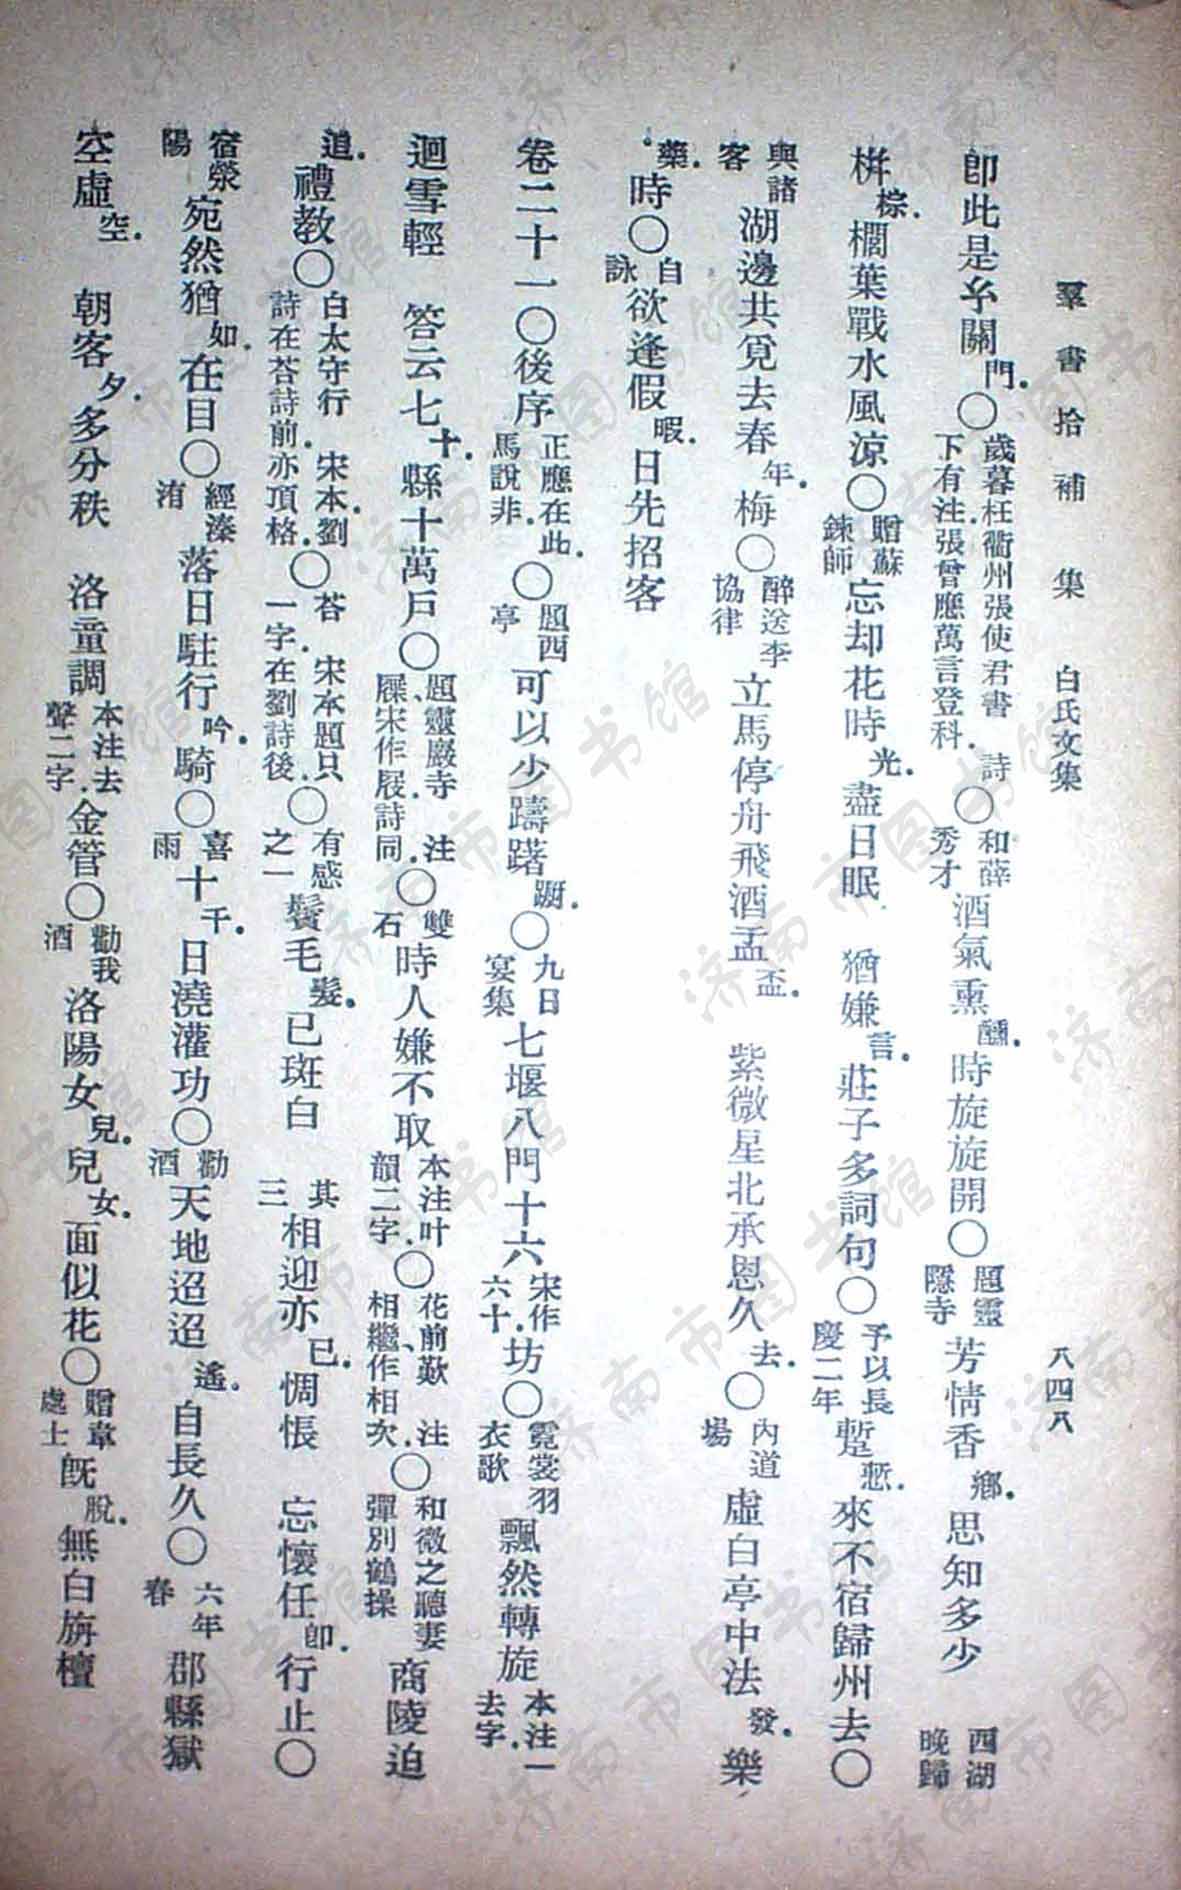 羣書拾補　集　白氏文集　八四八
卽此是𢆯關門.〇歲暮枉衢州張使君書　詩下有注.張曾應萬言登科.〇和薛秀才酒氣熏醺.時旋旋開〇題靈隱寺芳情香鄉.思知多少　西湖晚歸
栟棕.櫚葉戰水風涼〇贈蘇鍊師忘却花時光.盡日眠　猶嫌言.莊子多詞句〇予以長慶二年蹔慙.來不宿歸州去〇
與諸客湖邊共覓去春年.梅〇醉送李協律立馬停舟飛酒盂盃.　紫微星北承恩久去.〇內道場虛白亭中法發.樂
藥.時〇自詠欲逢假暇.日先招客
卷二十一〇後序正應在此.馬說非.〇題西亭可以少躊躇躕.〇九日宴集七堰八門十六宋作六十.坊〇霓裳羽衣歌飄然轉旋本注一去字.
迴雪輕　答云七十.縣十萬戶〇題靈巖寺　注屧宋作屐.詩同.〇雙石時人嫌不取本注叶韻二字.〇花前歎　注相繼作相次.〇和微之聽妻彈別鶴操商陵追
道.禮教〇白太守行　宋本劉詩在荅詩前.亦頂格.〇荅　宋本題只一字.在劉詩後.〇有感之一鬢毛髮.已斑白　其三相迎亦已.惆悵　忘懷任卽.行止〇
宿滎陽宛然猶如.在目〇經溱洧落日駐行吟.騎〇喜雨十千.日澆灌功〇勸酒天地迢迢遙.自長久〇六年春郡縣獄
空虛空.　朝客夕.多分秩　洛童調本注去聲二字.金管〇勸我酒洛陽女兒.兒女.面似花〇贈韋處士旣脫.無白旃檀